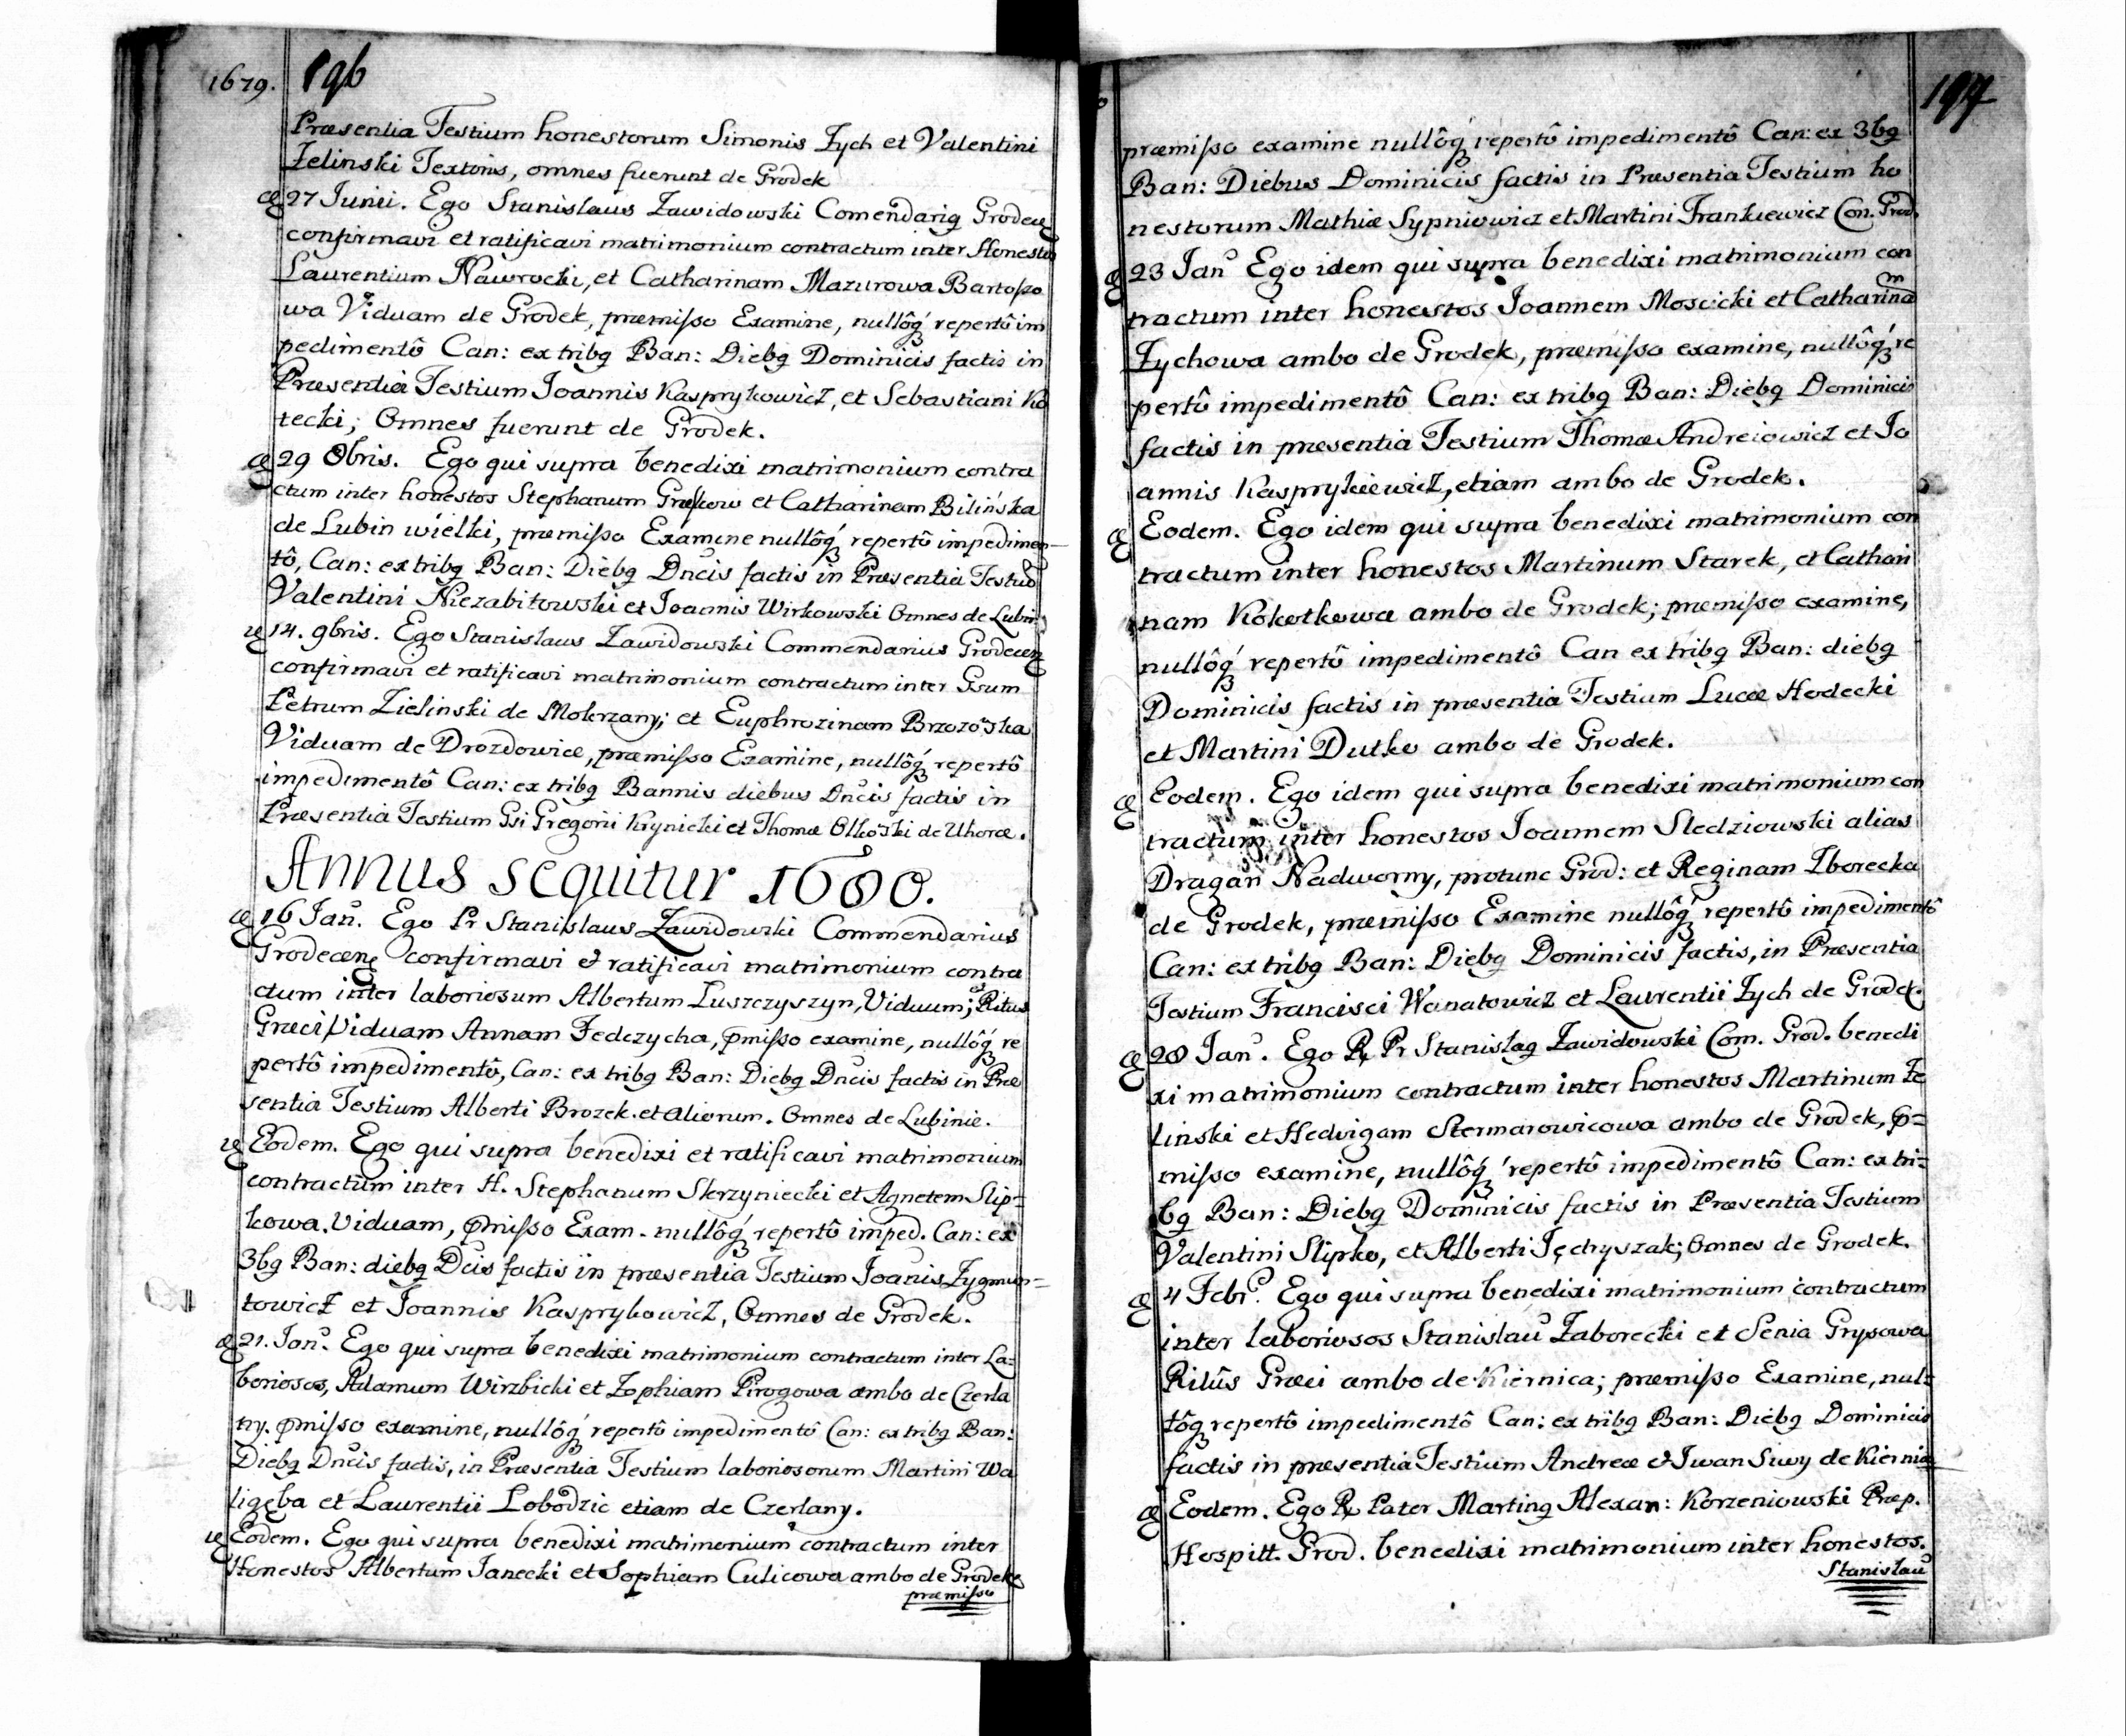 1679. 196
Præsentia Testium honestorum Simonis Zych et Valentini
Zelinski Textoris, omnes fuerunt de Grodek
27 Junii. Ego Stanislaus Zawidowski Comendariq Grodecen
confirmavi et ratificavi matrimonium contractum inter Honestos
Laurentium Nawrocki, et Catharinam Mazurowa Bartoszo
wa Viduam de Grodek, præmisso Examine, nullôq́ repertô im
pedimentô Can: ex tribq Ban: Diebq Dominicis factis in
Præsentia Testium Joannis Kasprykowicz, et Sebastiani Ko
tecki; Omnes fuerunt de Grodek.
29 8bris. Ego qui supra benedixi matrimonium contra
ctum inter honestos Stephanum et Catharinam Bilińska
de Lubin wielki, præmisso Examine nullôq́ repertô impedimen-
tô, Can: ex tribq Ban: Diebq Dn̄cis factis in Præsentia Testiū
Valentini Niezabitowski et Joannis Wirkowski Omnes de Lubin
14. 9bris. Ego Stanislaus Zawidowski Commendarius Grodecen
confirmavi et ratificavi matrimonium contractum inter Gsum
Petrum Zielinski de Mokrzany; et Euphrozinam Brzozoska
Viduam de Drozdowice, præmisso Examine, nullôq́ repertô
impedimentô Can: ex tribq Bannis diebus Dn̄cis factis in
Præsentia Testium Gsi Gregorii Krynicki et Thomæ Olkoski de Uhorce.
Annus sequitur 1680.
16 Jan̄. Ego Pr Stanislaus Zawidowski Commendarius
Grodecen confirmavi et ratificavi matrimonium contra
ctum inter laboriosum Albertum Luszczyszyn, Viduum; et Ritus
Græci Viduam Annam Fedczycha, p̄misso examine, nullôq́ re
pertô impedimentô, Can: ex tribq Ban: Diebq Dn̄cis factis in Præ
sentia Testium Alberti Brozek. et aliorum. Omnes de Lubinie.
Eodem. Ego qui supra benedixi et ratificavi matrimonium
contractum inter H. Stephanum Skrzyniecki et Agnetem Slip=
kowa. Viduam, p̄misso Exam. nullôq́ repertô imped. Can: ex
3bq Ban: diebq Dcis factis in præsentia Testium Joānis Zygmun=
towicz et Joannis Kasprykowicz, Omnes de Grodek.
21. Jan̄. Ego qui supra benedixi matrimonium contractum inter La=
boriosos, Adamum Wirzbicki et Zophiam Pirogowa ambo de Czerla
ny. p̄misso examine, nullôq́ repertô impedimentô Can: ex tribq Ban:
Diebq Dn̄cis factis, in Præsentia Testium laboriosorum Martini Wa
ligęba et Laurentii Lobodzic etiam de Czerlany.
Eodem. Ego qui supra benedixi matrimonium contractum inter
Honestos Albertum Janecki et Sophiam Culicowa ambo de Grodek
præmisso
197
præmisso examine nullôq́ repertô impedimentô Can: ex 3bq
Ban: Diebus Dominicis factis in Præsentia Testium ho
nestorum Mathiæ Sypniowicz et Martini Frankiewicz Con. Grod.
23 Jan̄ Ego idem qui supra benedixi matrimonium con
tractum inter honestos Joannem Moscicki et Catharinam
Zychowa ambo de Grodek, præmisso examine, nullôq́ re
pertô impedimentô Can: ex tribq Ban: Diebq Dominicis
factis in præsentia Testium Thomæ Andreiowicz et Jo
annis Kasprykiewicz, etiam ambo de Grodek.
Eodem. Ego idem qui supra benedixi matrimonium con
tractum inter honestos Martinum Starek, et Cathari
nam Kokotkowa ambo de Grodek; præmisso examine,
nullôq́ repertô impedimentô Can ex tribq Ban: diebq
Dominicis factis in præsentia Testium Lucæ Hodecki
et Martini Dutko ambo de Grodek.
Eodem. Ego idem qui supra benedixi matrimonium con
tractum inter honestos Joannem Sledziowski alias
Dragan Nadworny, protunc Grod: et Reginam Zborecka
de Grodek, præmisso Examine nullôq́ repertô impedimentô
Can: ex tribq Ban: Diebq Dominicis factis, in Præsentia
Testium Francisci Wonatowicz et Laurentii Zych de Grodek.
28 Jan̄. Ego R Pr Stanislaq Zawidowski Com. Grod. benedi
xi matrimonium contractum inter honestos Martinum Ze
linski et Hedvigam Stermarowicowa ambo de Grodek, p̄=
misso examine, nullôq́ repertô impedimentô Can: ex tri=
bq Ban: Diebq Dominicis factis in Præsentia Testium
Valentini Slipko, et Alberti Jędryszak; Omnes de Grodek.
4 Febr. Ego qui supra benedixi matrimonium contractum
inter laboriosos Stanislaū Zaborecki et Senia Grysowa
Ritûs Græci ambo de Kiernica; præmisso Examine, nul=
lôq repertô impedimentô Can: ex tribq Ban: Diebq Dominicis
factis in præsentia Testium Andreæ et Iwan Siwy de Kiernica
Eodem. Ego R Pater Martinq Alexan: Korzeniowski Præp.
Hospitt. Grod. benedixi matrimonium inter honestos.
Stanislaū